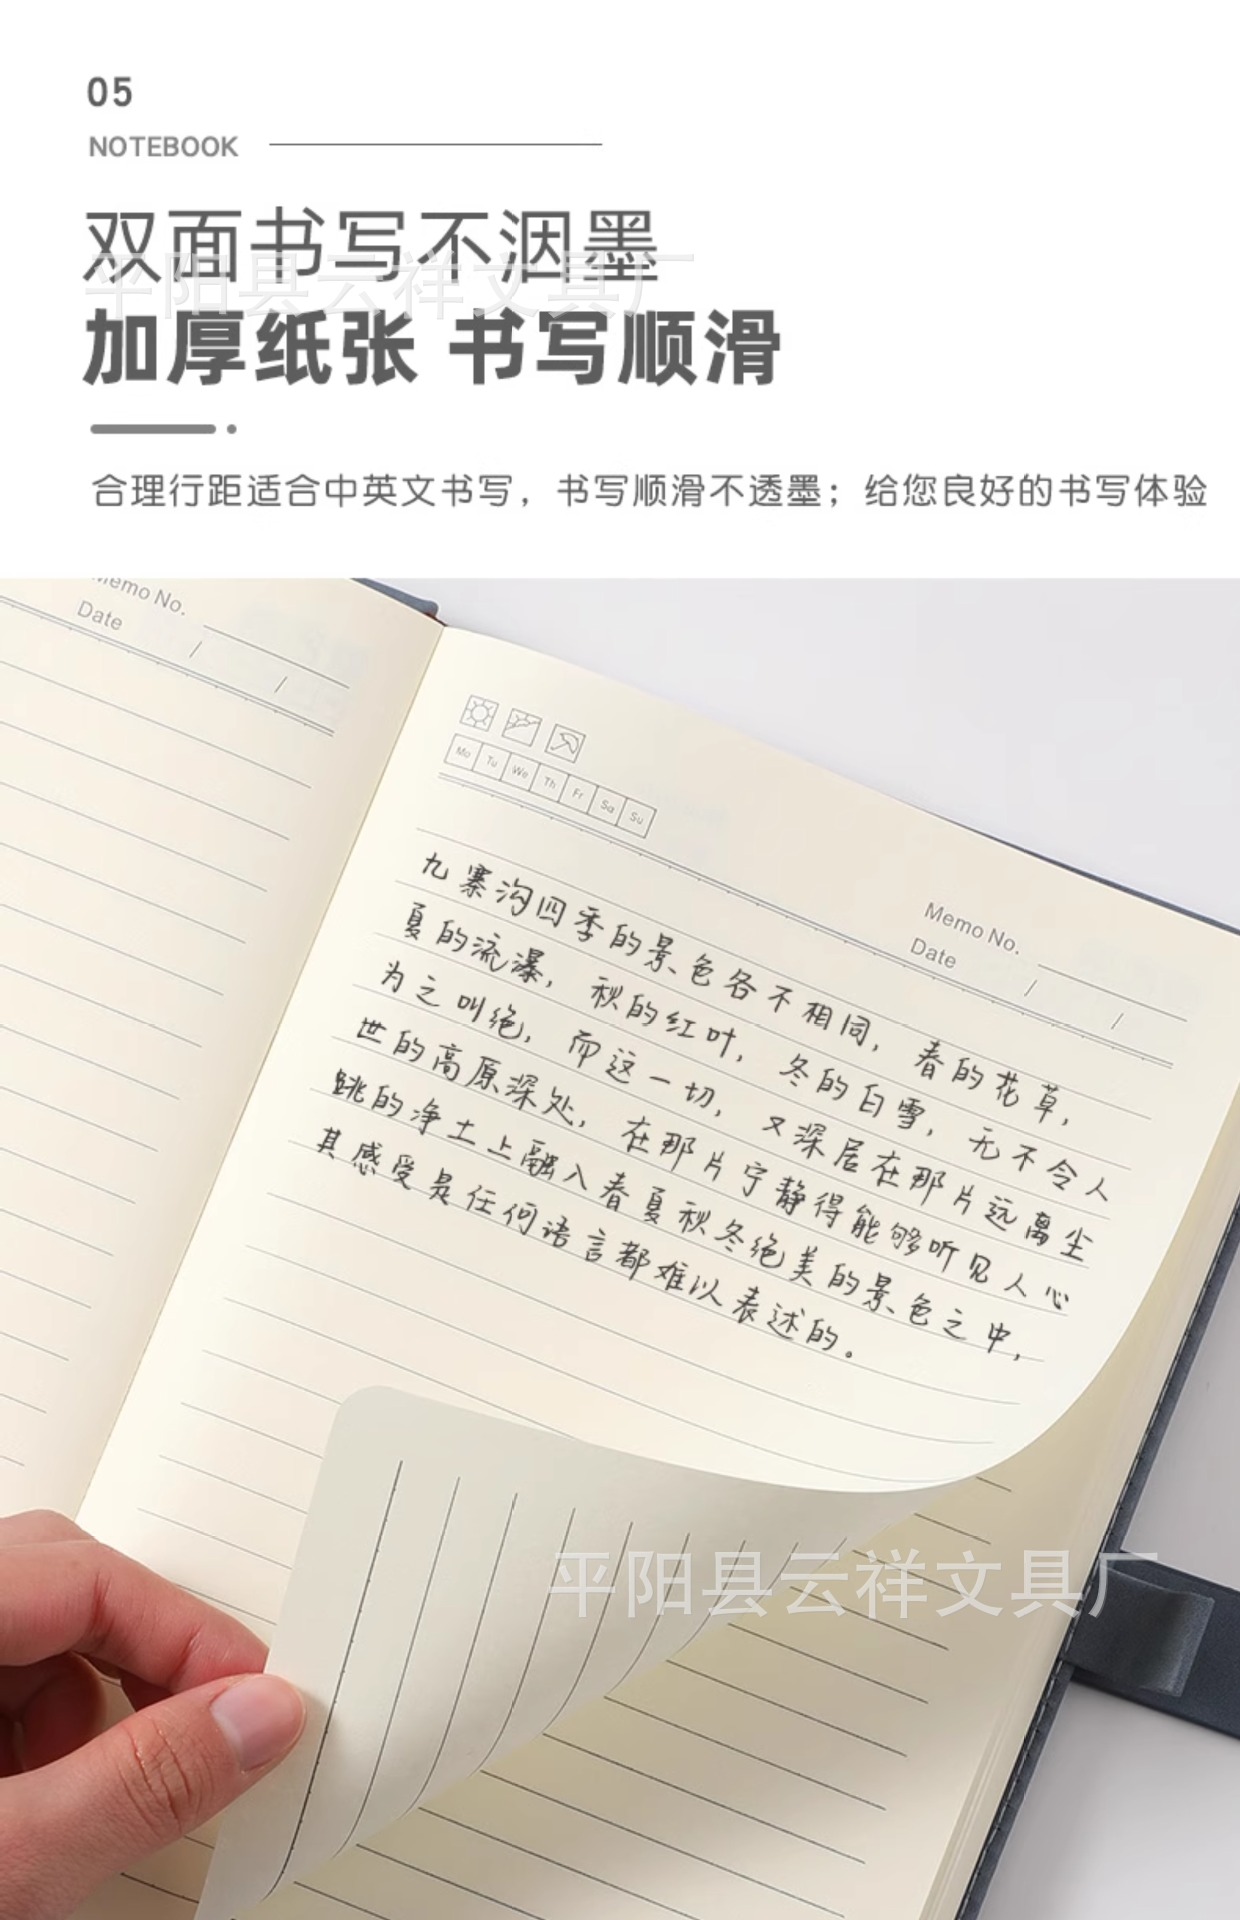 05
NOTEBOOK
双面书写不洇墨
平阳县云祥文具厂
加厚纸张 书写顺滑
合理行距适合中英文书写，书写顺滑不透墨；给您良好的书写体验
Memo No.
Date / /
Mo Tu We Th Fr Sa Su
Memo No.
Date / /
九寨沟四季的景色各不相同，春的花草，
夏的流瀑，秋的红叶，冬的白雪，无不令人
为之叫绝，而这一切，又深居在那片远离尘
世的高原深处，在那片宁静得能够听见人心
跳的净土上融入春夏秋冬绝美的景色之中，
其感受是任何语言都难以表述的。
平阳县云祥文具厂